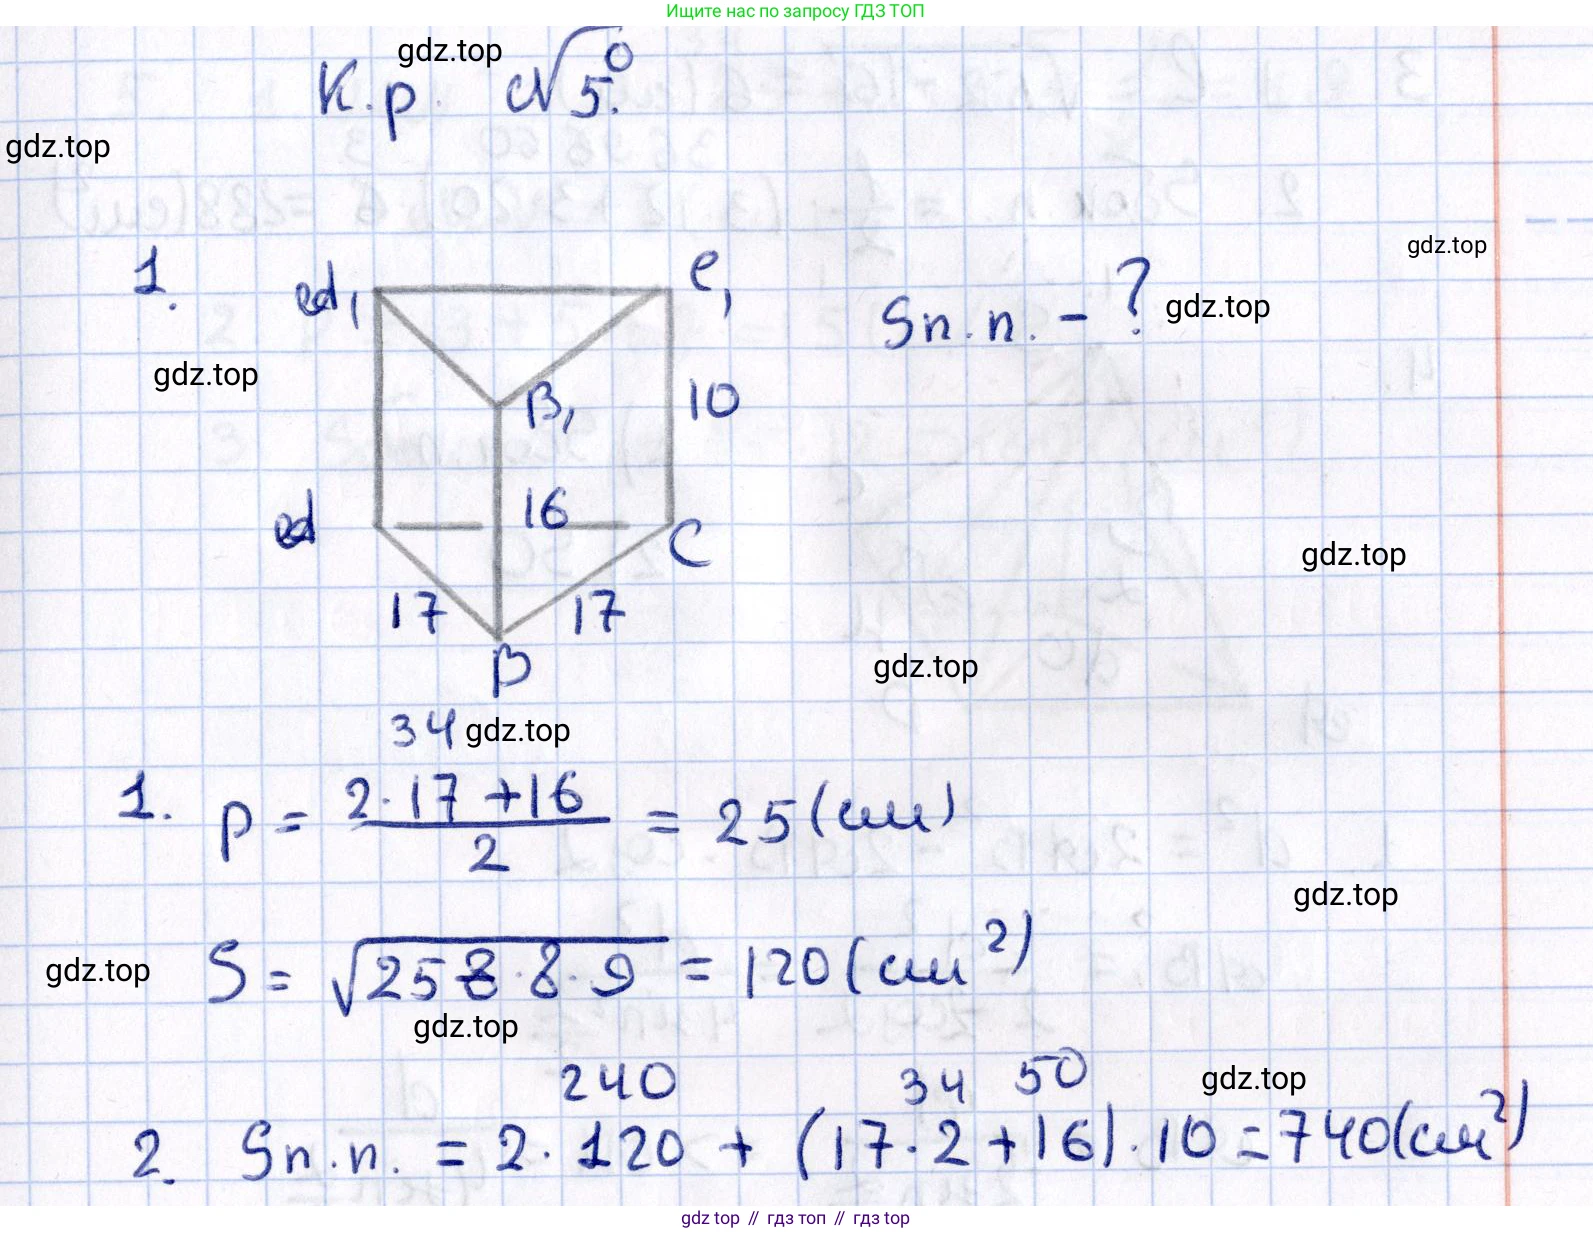 Ищите нас по запросу ГДЗ ТОП
gdz.top
К.р. №5.
gdz.top
gdz.top
1. A₁ C₁ Sп.п. - ? gdz.top
gdz.top
B₁ 10
A 16 C
gdz.top
17 17
gdz.top
B
34 gdz.top
1. p = (2·17+16)/2 = 25(см)
gdz.top
gdz.top S = √(25·8·9) = 120(см²)
gdz.top
240 34 50 gdz.top
2. Sп.п. = 2·120 + (17·2+16)·10=740(см²)
gdz top // гдз топ // гдз top